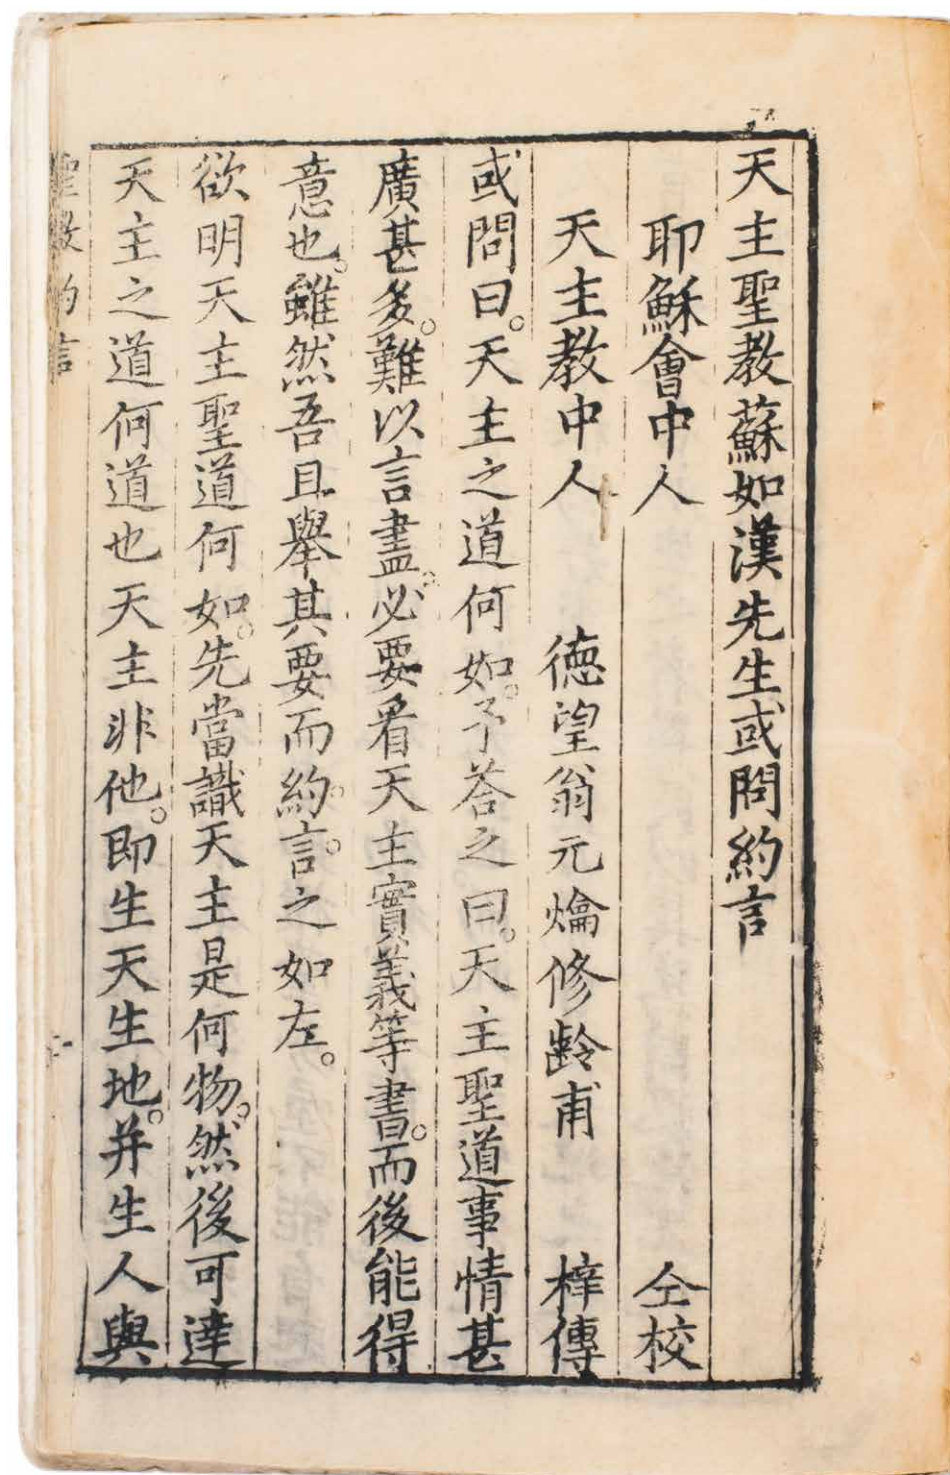 天主聖教蘇如漢先生或問約言
耶穌會中人 仝校
天主教中人 德望翁元爚修齡甫 梓傳
或問曰。天主之道何如。予荅之曰。天主聖道事情甚
廣甚多。難以言盡。必要看天主實義等書。而後能得
意也。雖然吾且舉其要而約。言。之如左。
欲明天主聖道何如。先當識天主是何物。然後可達
天主之道何道也天主非他。即生天生地。并生人與
聖教約言